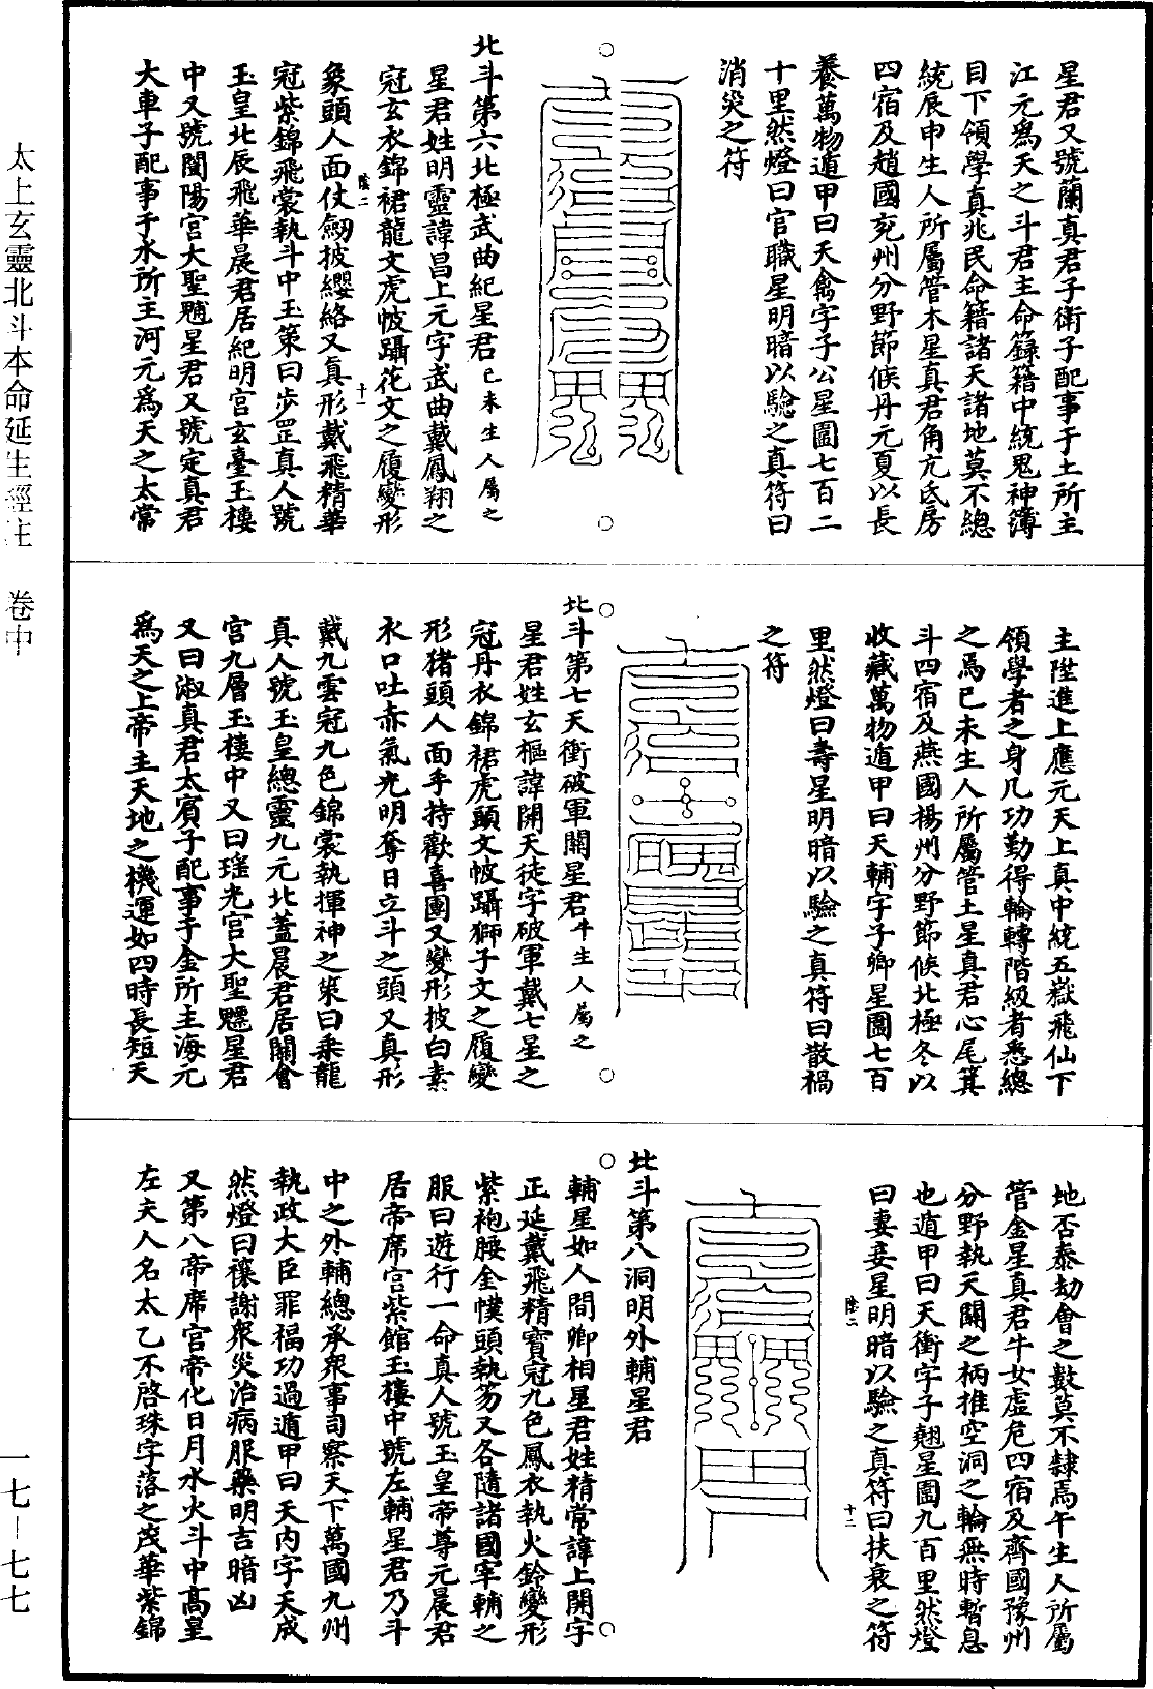 太上玄靈北斗本命延生經註 卷中
一七—七七
星君又號蘭真君子衛子配事于土所主
江元為天之斗君主命籙籍中統鬼神簿
目下領學真兆民命籍諸天諸地莫不總
統辰申生人所屬管木星真君角亢氐房
四宿及趙國兗州分野節候丹元夏以長
養萬物遁甲曰天禽字子公星圍七百二
十里然燈曰官職星明暗以驗之真符曰
消災之符
北斗第六北極武曲紀星君巳未生人屬之
星君姓明靈諱昌上元字武曲戴鳳翔之
冠玄衣錦裙龍文虎帔躡花文之履變形
象頭人面仗劒披纓絡又真形戴飛精華
陰二
十一
冠紫錦飛裳執斗中玉策曰步罡真人號
玉皇北辰飛華晨君居紀明宮玄臺玉樓
中又號闓陽宮大聖䰢星君又號定真君
大車子配事于水所主河元為天之太常
主陞進上應元天上真中統五嶽飛仙下
領學者之身凡功勤得輪轉階級者悉總
之焉巳未生人所屬管土星真君心尾箕
斗四宿及燕國楊州分野節候北極冬以
收藏萬物遁甲曰天輔字子卿星圍七百
里然燈曰壽星明暗以驗之真符曰散禍
之符
北斗第七天衝破軍關星君午生人屬之
星君姓玄樞諱開天徒字破軍戴七星之
冠丹衣錦裙虎頭文帔躡獅子文之履變
形猪頭人面手持歡喜團又變形披白素
水口吐赤氣光明奪日立斗之頭又真形
戴九雲冠九色錦裳執揮神之策曰乘龍
真人號玉皇總靈九元北蓋晨君居關會
宮九層玉樓中又曰瑤光宮大聖魒星君
又曰淑真君太賓子配事于金所主海元
為天之上帝主天地之機運如四時長短天
地否泰劫會之數莫不隸焉午生人所屬
管金星真君牛女虛危四宿及齊國豫州
分野執天關之柄推空洞之輪無時暫息
也遁甲曰天衝字子翹星圍九百里然燈
陰二
十二
曰妻妾星明暗以驗之真符曰扶衰之符
北斗第八洞明外輔星君
輔星如人間卿相星君姓精常諱上開字
正延戴飛精寶冠九色鳳衣執火鈴變形
紫袍腰金幞頭執笏又各隨諸國宰輔之
服曰遊行一命真人號玉皇帝尊元晨君
居帝席宮紫館玉樓中號左輔星君乃斗
中之外輔總承眾事司察天下萬國九州
執政大臣罪福功過遁甲曰天內字天成
然燈曰禳謝眾災治病服藥明吉暗凶
又第八帝席宮帝化日月水火斗中高皇
左夫人名太乙不啓珠字落之茂華紫錦